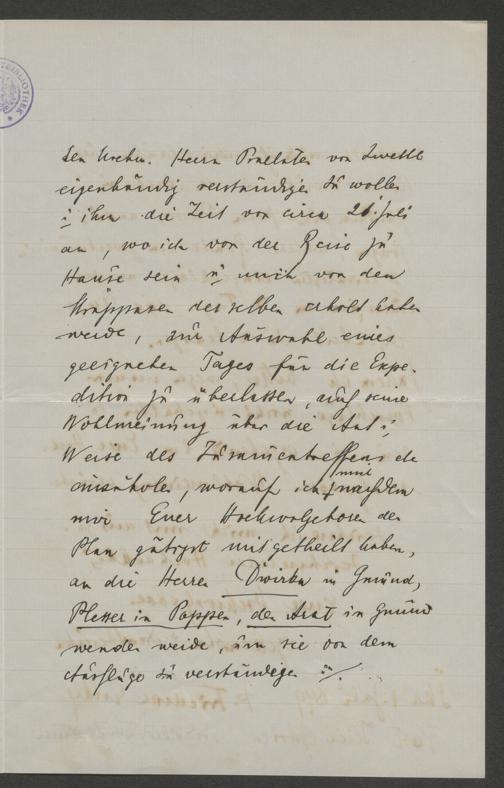 den hochw. Herrn Praelaten von Zwettl
eigenhändig verständigen zu wollen
u. ihm die Zeit von circa 21. Juli
an, wo ich von der Reise zu
Hause sein u. mich von den
Strappazen derselben erholt haben
werde, zur Auswahl eines
geeigneten Tages für die Expe-
dition zu überlassen, auch seine
Wohlmeinung über die Art u.
Weise des Zusammentreffens etc
einzuholen, worauf ich, nachdem
mir Euer Hochwolgeboren den
Plan gütigst mitgetheilt haben,
an die Herren Dwirka in Gmünd,
Plesser in Poppen, den Arzt in Gmünd
wenden werde, um sie von dem
Ausfluge zu verständigen
BIBLIOTHEK